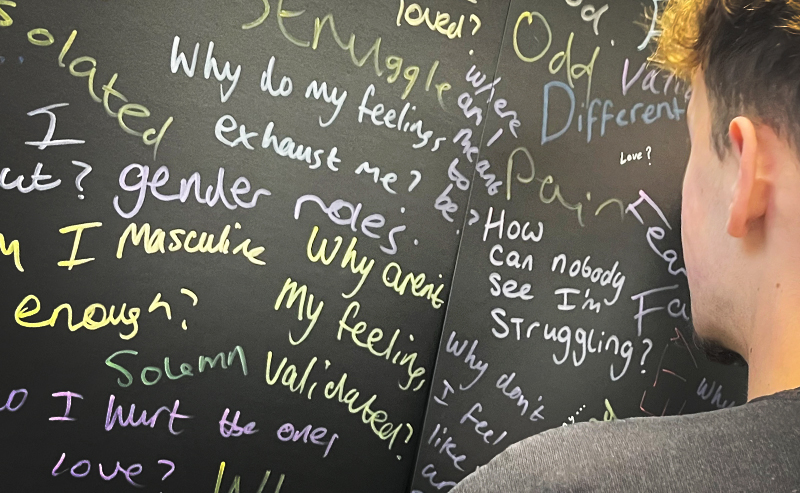 Isolated
Struggle
loved?
Why do my feelings
exhaust me?
I
gender roles.
I Masculine
enough?
Why arent
my feelings
validated?
Solemn
I hurt the ones
love?
where
am I
meant
to
be?
Odd
Different
Love?
Pain
Fear
How
can nobody
see I'm
Struggling?
Why don't
I feel
like
Why